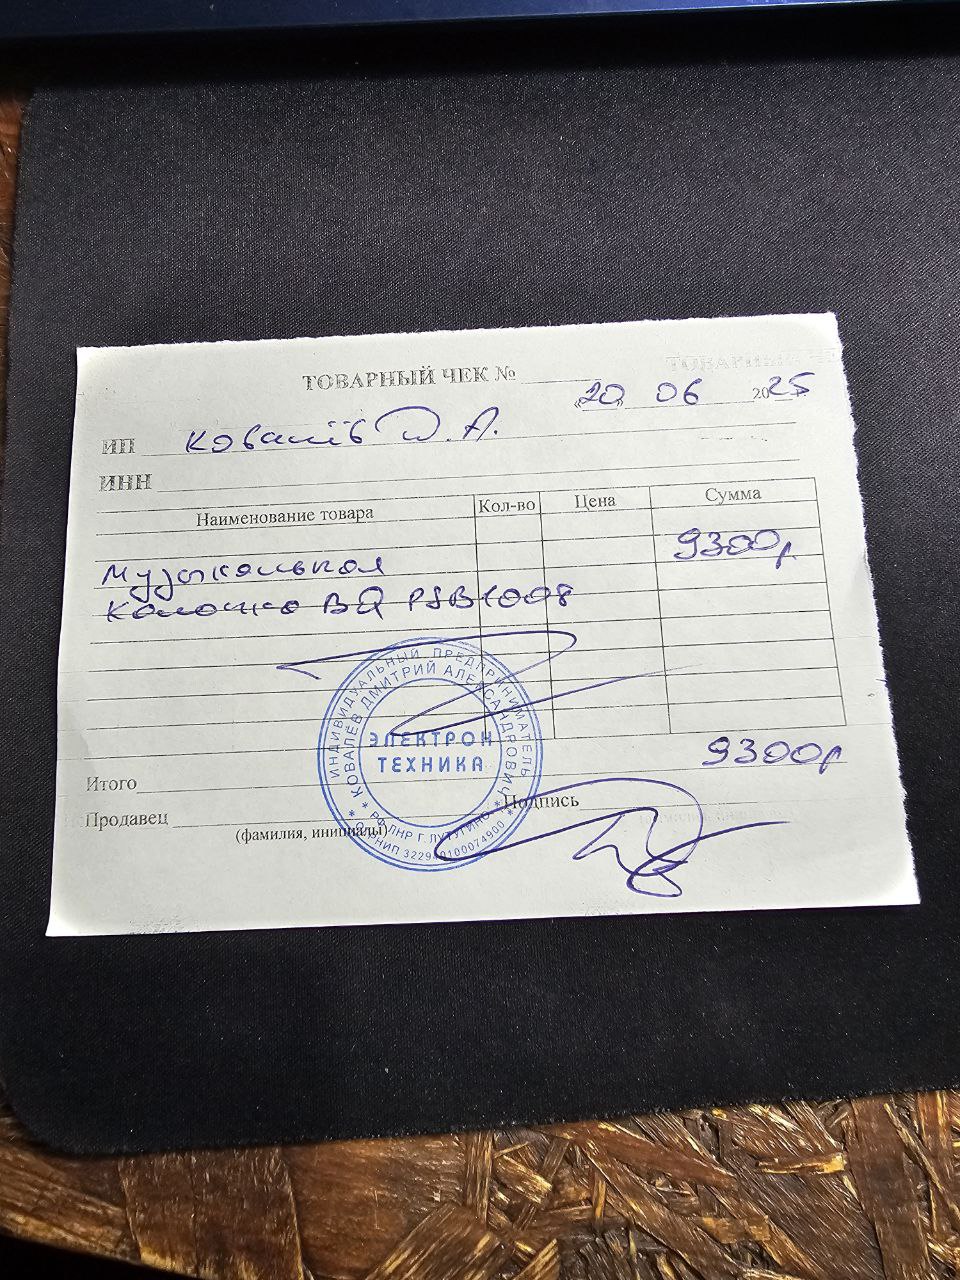 ТОВАРНЫЙ ЧЕК №
«20» 06 2025
ИП Ковалёв Д.А.
ИНН
Наименование товара Кол-во Цена Сумма
Музыкальная 9300р
Колонка BQ PSB1008
ИНДИВИДУАЛЬНЫЙ ПРЕДПРИНИМАТЕЛЬ
КОВАЛЁВ ДМИТРИЙ АЛЕКСАНДРОВИЧ
ЭЛЕКТРОН
ТЕХНИКА
* РФ ЛНР Г. ЛУТУГИНО *
* ОГРНИП 322940100074900 *
Итого 9300р
Продавец Подпись
(фамилия, инициалы)